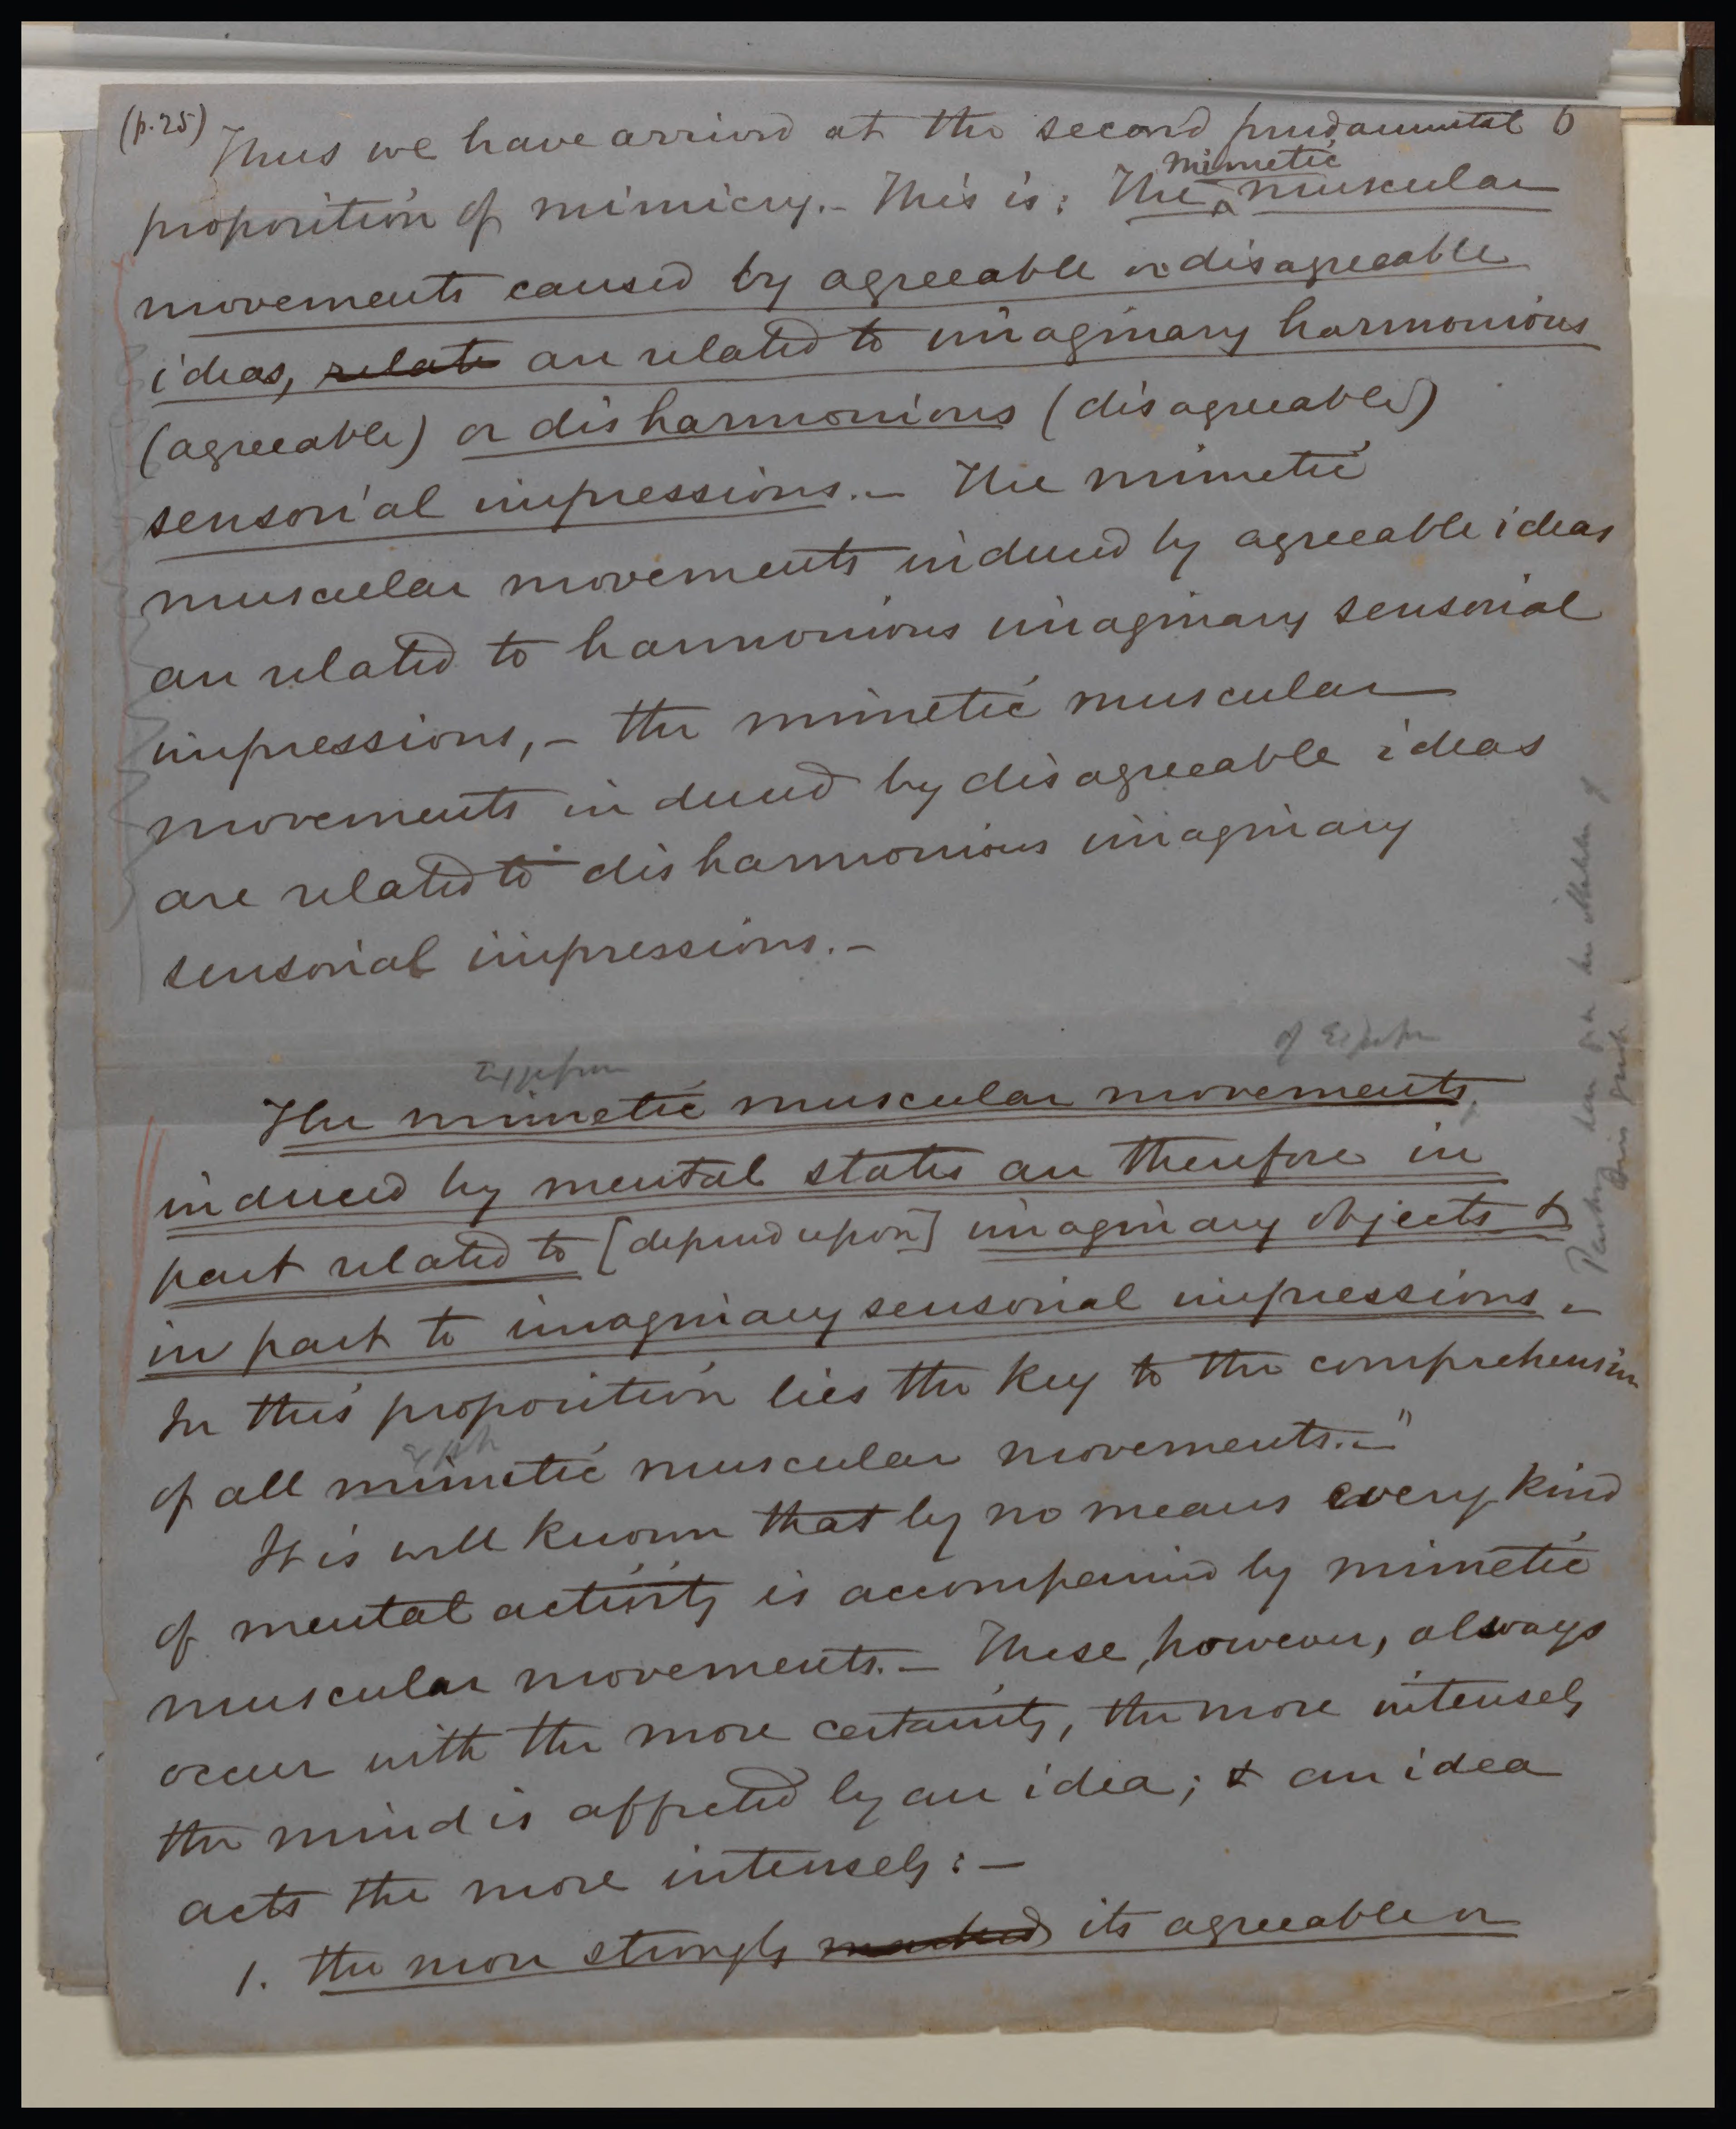 (p. 25) Thus we have arrived at the second fundamental 6
mimetic
proposition of mimicry. – This is: The ^ muscular
movements caused by agreeable or disagreeable
ideas, relate are related to imaginary harmonious
(agreeable) or disharmonious (disagreeable)
sensorial impressions. – The mimetic
muscular movements induced by agreeable ideas
are related to harmonious imaginary sensorial
impressions, – the mimetic muscular
movements induced by disagreeable ideas
are related to disharmonious imaginary
sensorial impressions. –
of Expression
Expression
The mimetic muscular movements
induced by mental states are therefore in
part related to [depend upon] imaginary objects &
in part to imaginary sensorial impressions –
In this proposition lies the key to the comprehension
of all mimetic muscular movements. –"
It is well known that by no means every kind
of mental activity is accompanied by mimetic
muscular movements. – These, however, always
occur with the more certainty, the more intensely
the mind is affected by an idea; & an idea
acts the more intensely: –
1. the more strongly marked its agreeable or